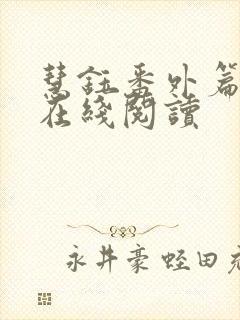 慧鈺番外篇
在綫閱讀
永井豪 蛭田充